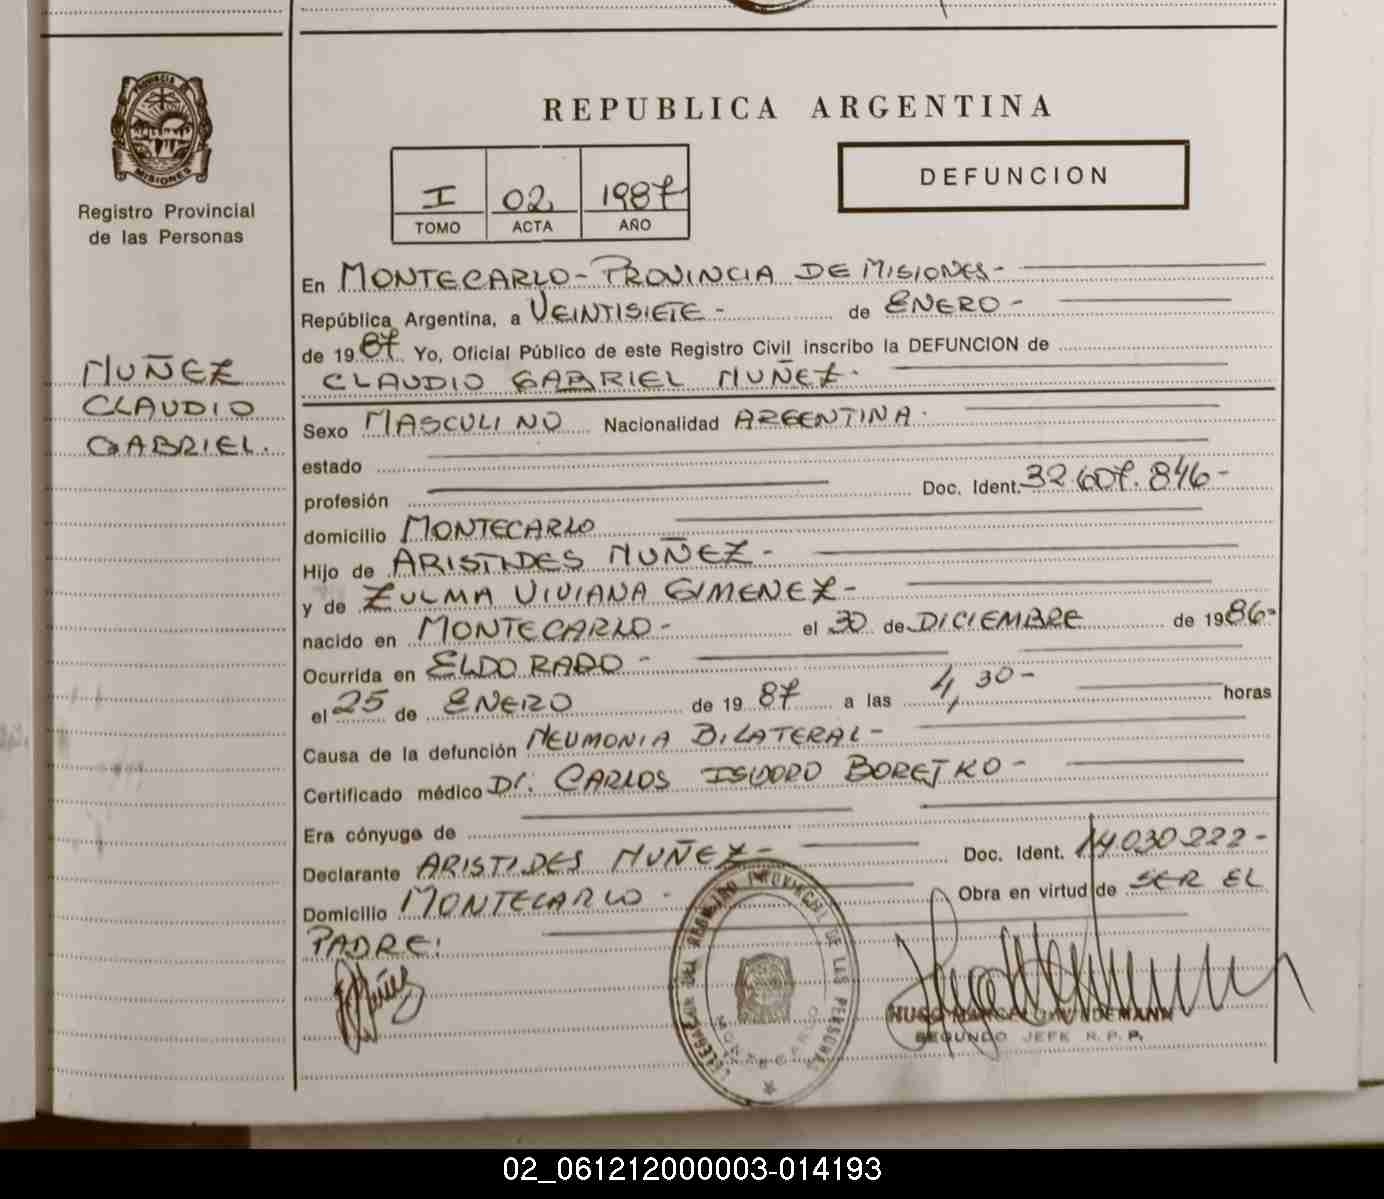 PROVINCIA
MISIONES
Registro Provincial
de las Personas
MUÑEZ
CLAUDIO
GABRIEL.
REPUBLICA ARGENTINA
I 02 1987
TOMO ACTA AÑO
DEFUNCION
En MONTECARLO - PROVINCIA DE MISIONES -
República Argentina, a VEINTISIETE - de ENERO -
de 1987 Yo, Oficial Público de este Registro Civil inscribo la DEFUNCION de
CLAUDIO GABRIEL MUÑEZ.
Sexo MASCULINO Nacionalidad ARGENTINA.
estado
profesión Doc. Ident. 32.607.846-
domicilio MONTECARLO
Hijo de ARISTIDES MUÑEZ -
y de ZULMA VIVIANA GIMENEZ -
nacido en MONTECARLO - el 30 de DICIEMBRE de 1986-
Ocurrida en ELDORADO -
el 25 de ENERO de 1987 a las 4,30 - horas
Causa de la defunción NEUMONIA BILATERAL -
Certificado médico Dr. CARLOS ISIDORO BORETKO -
Era cónyuge de
Declarante ARISTIDES MUÑEZ - Doc. Ident. 14.030.222-
Domicilio MONTECARLO - Obra en virtud de SER EL
PADRE.
REGISTRO PROVINCIAL DE LAS PERSONAS
MONTECARLO
SEGUNDO JEFE R.P.P.
02_061212000003-014193